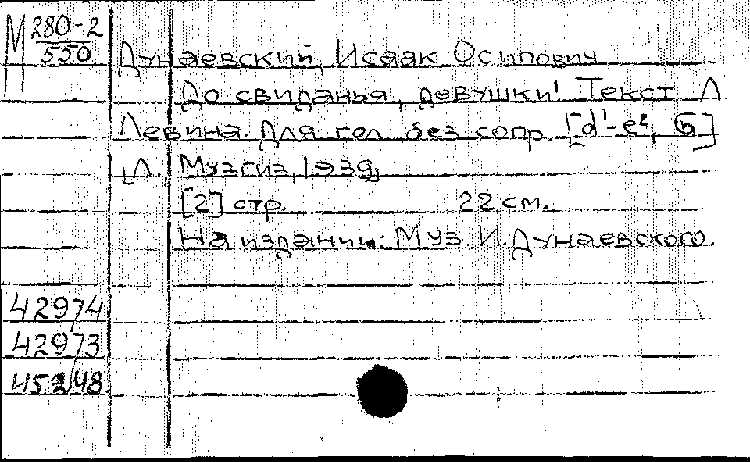 М 280-2
550
Дунаевский, Исаак Осипович
До свиданья, девушки! Текст Л
Левина. Для гол. без сопр. [d¹-e², G]
Л. Музгиз, 1939,
[2] стр. 22 см.
На издании: Муз И. Дунаевского.
42974
42973
45248